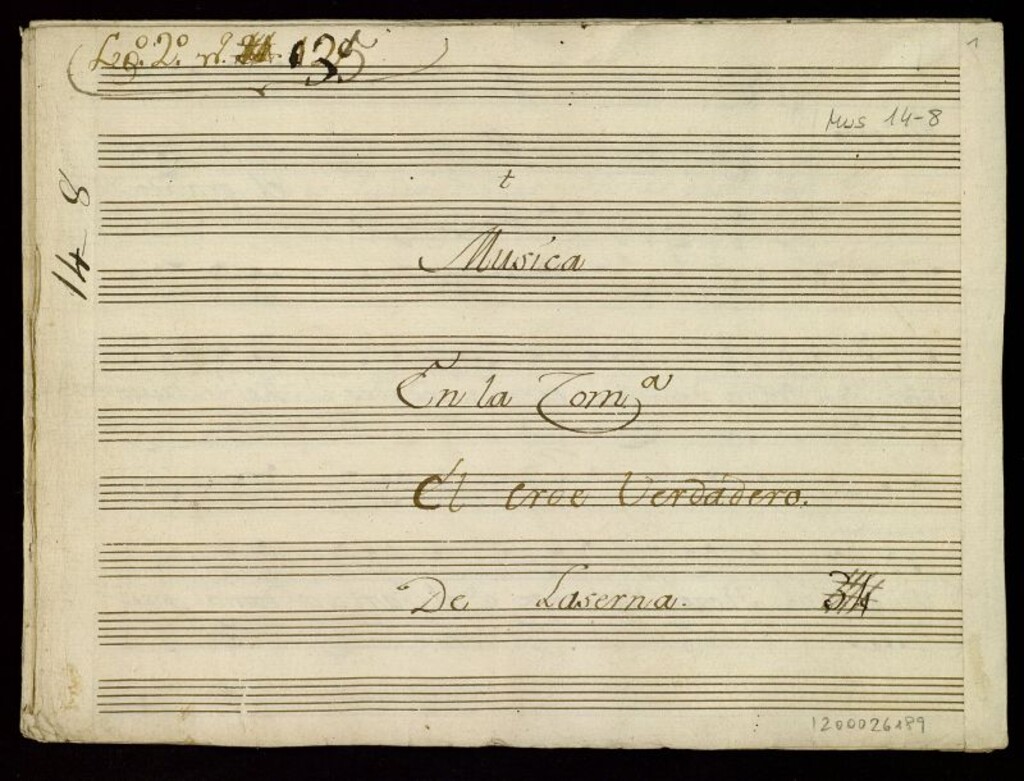 Leg.º 2.º n.º 135
1
Mus 14-8
14-8
t
Musica
En la Tom.a
El eroe Verdadero.
De Laserna.
1200026189